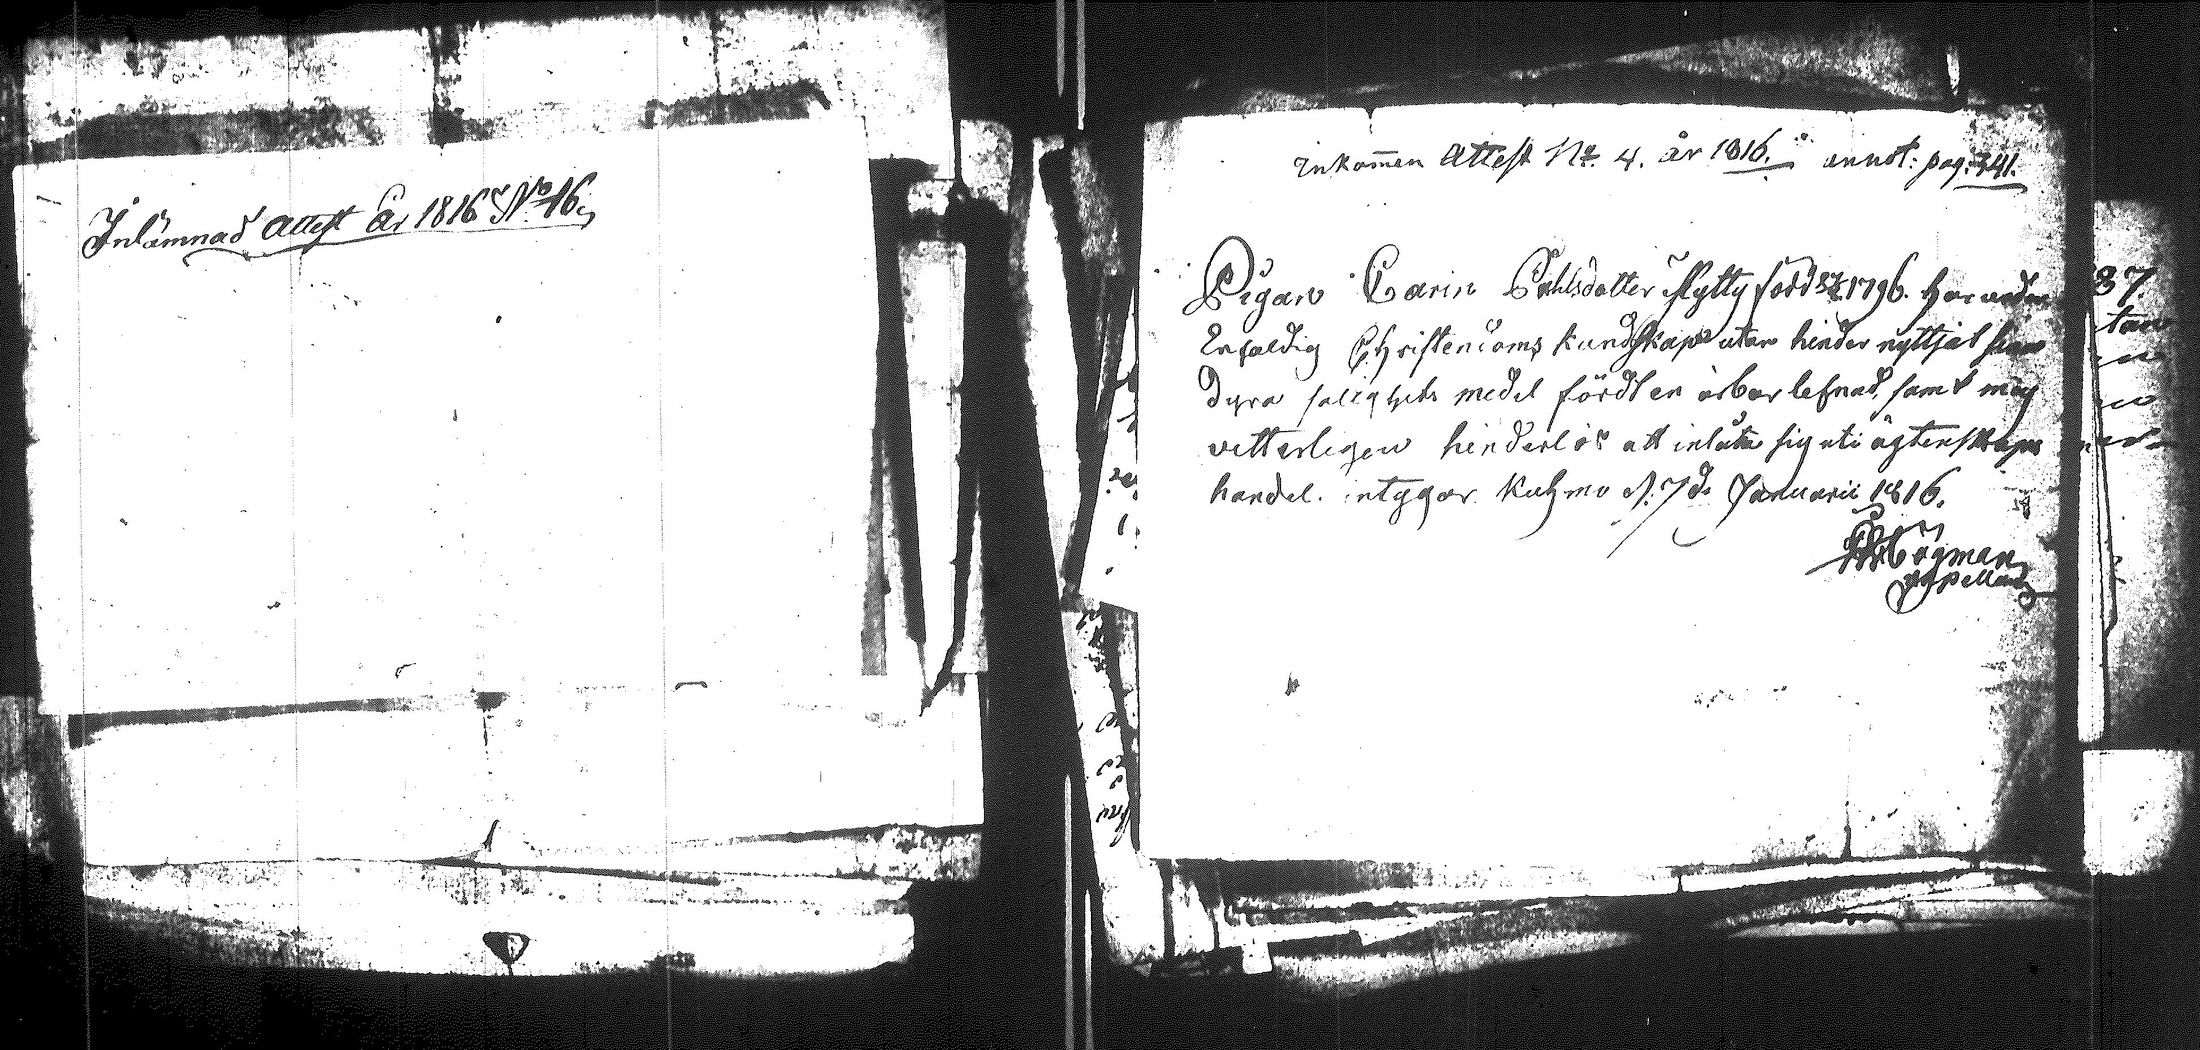 Inlämnad Attest År 1816 No 16
Inkom̄en Attest No. 4. år 1816. annot: pag: 341.
Pigan Carin Påhlsdotter född 1796. Har
Enfaldig Christendoms kundskap utan hinder nyttjat sina
dyra salighets medel fördt en ärbar lefnad, samt mig
vitterligen hinderlös att inlåta sig uti ägtenskaps
handel. intygar Kuhmo d. 7 de Januarii 1816.
Capellan
37.